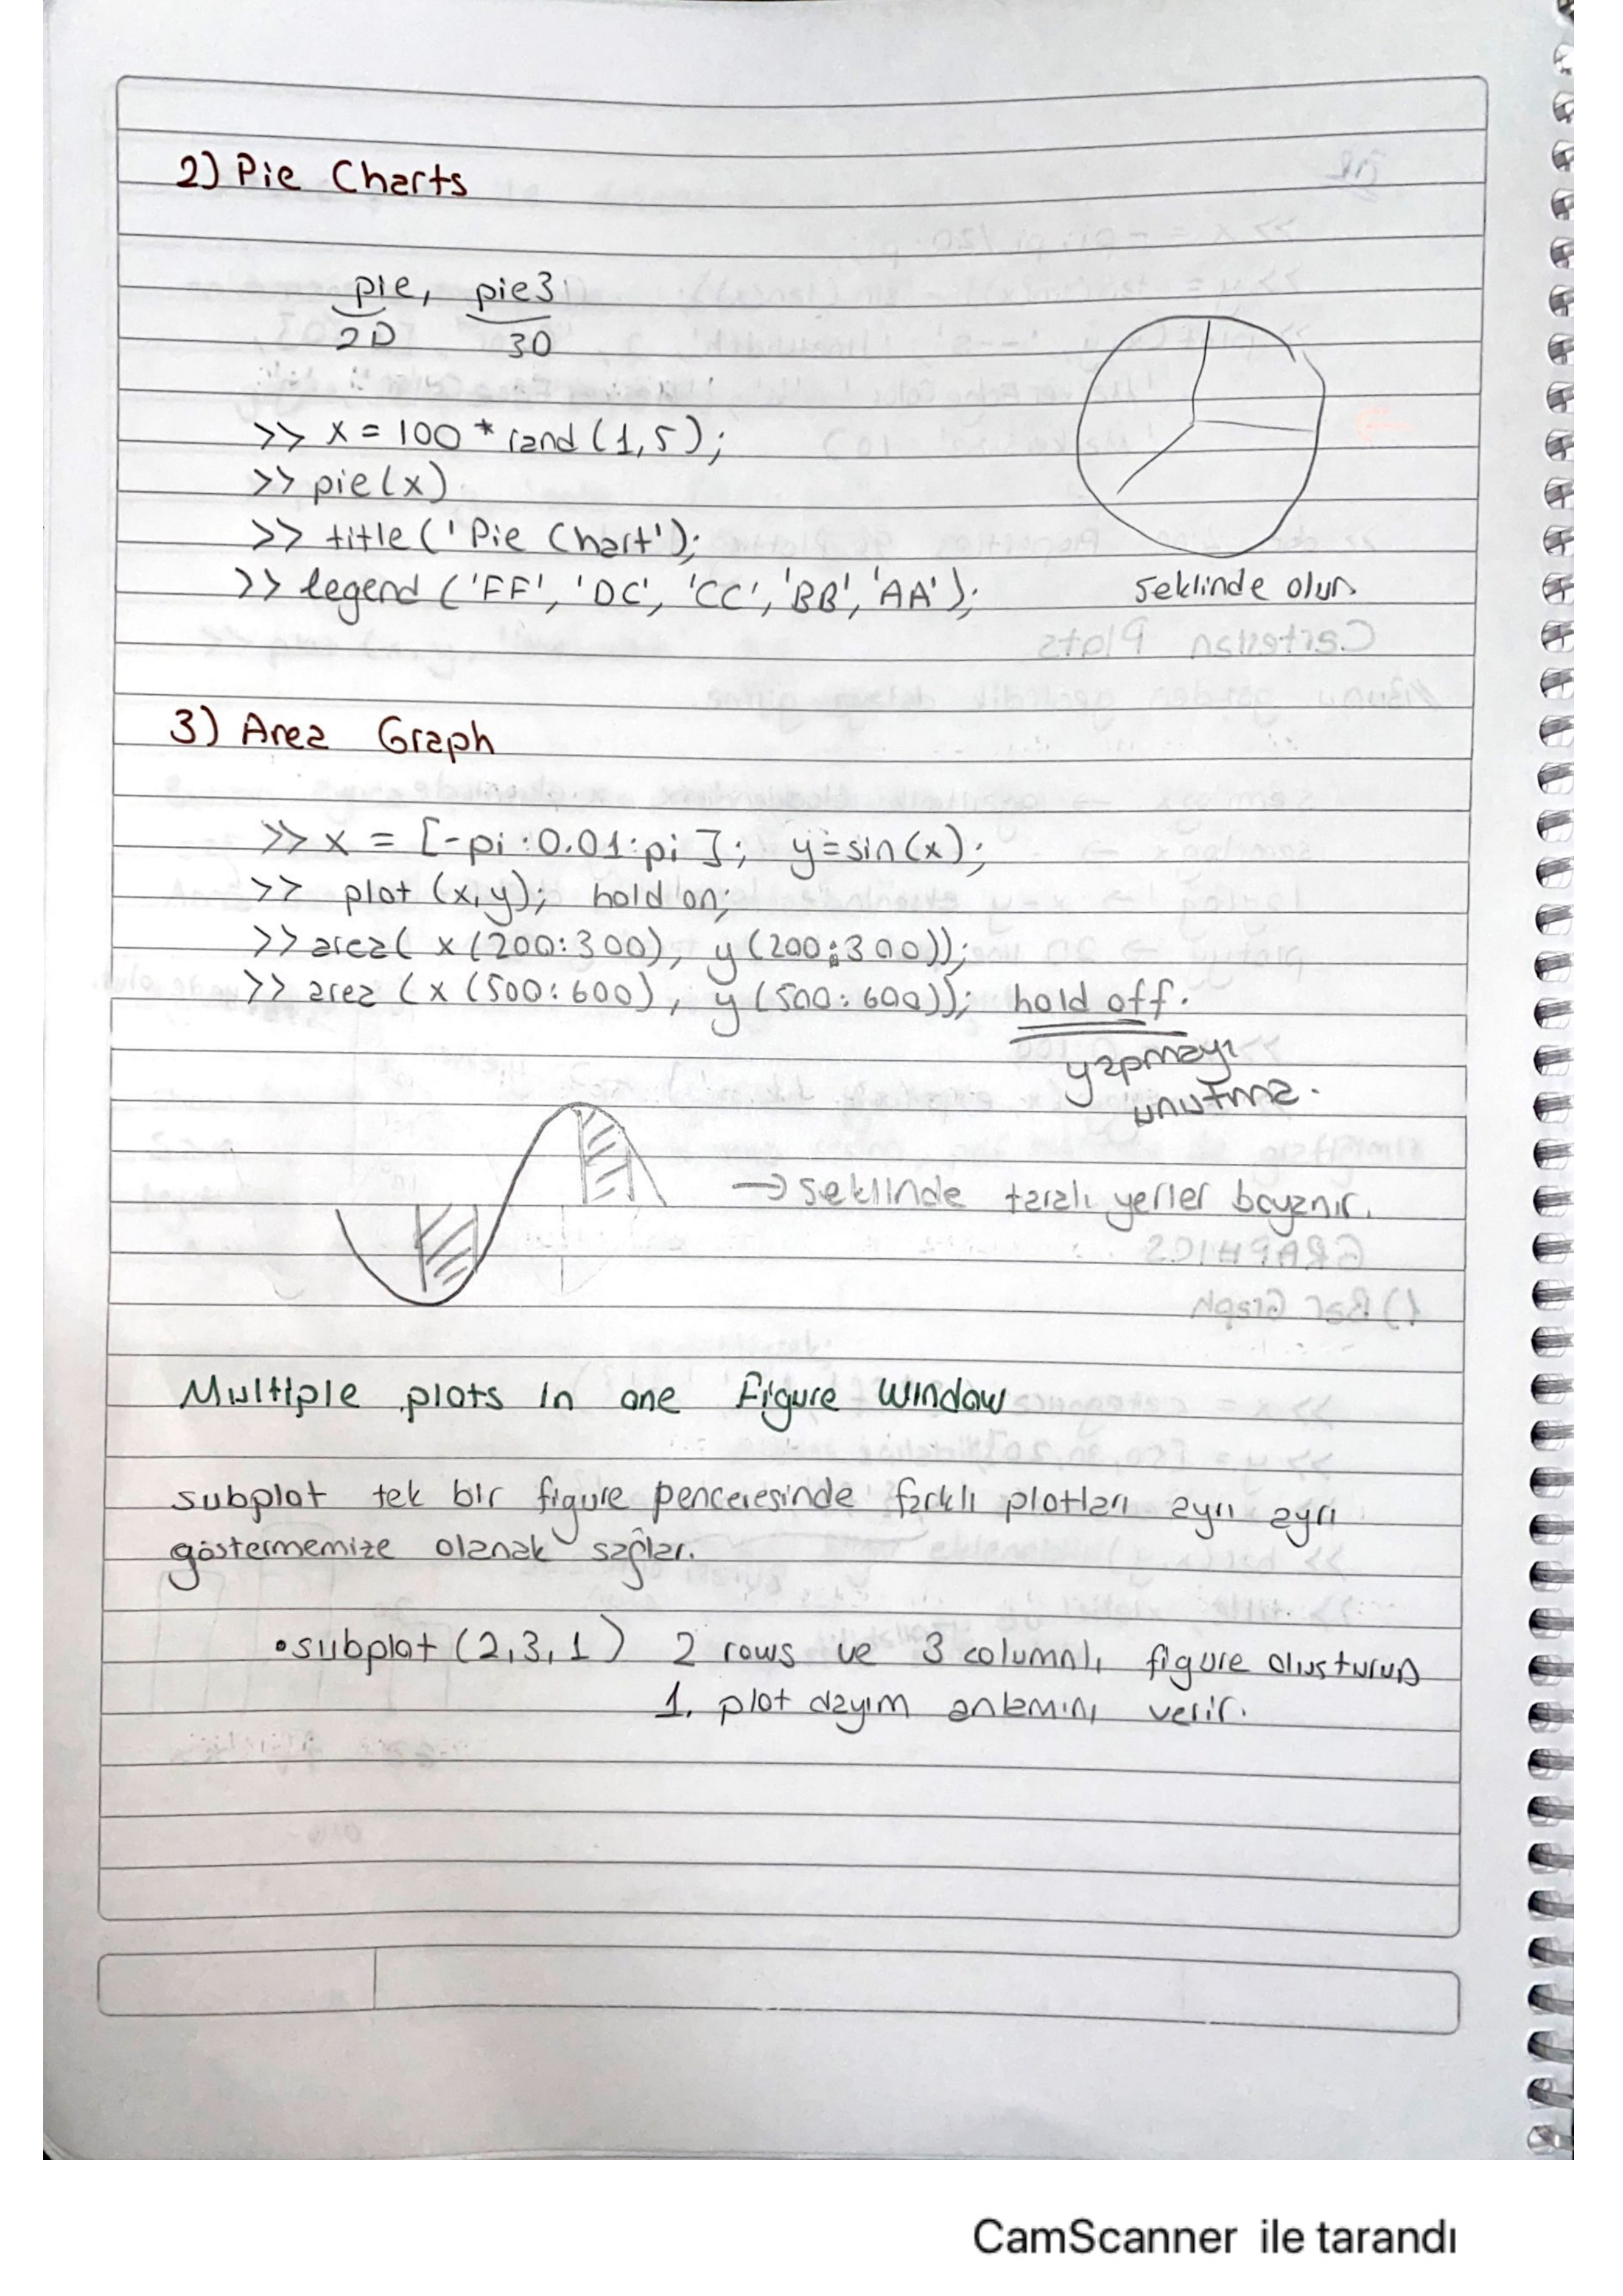 2) Pie Charts
pie, pie3
2D 3D
>> x = 100 * rand (1,5);
>> pie(x)
>> title ('Pie Chart');
>> legend ('FF', 'DC', 'CC', 'BB', 'AA');
seklinde olur.
3) Area Graph
>> x = [-pi:0.01:pi]; y=sin(x);
>> plot (x,y); hold on;
>> area( x (200:300), y (200:300));
>> area (x (500:600), y (500:600)); hold off.
yapmayı
unutma.
→ seklinde taralı yerler boyanır.
Multiple plots in one Figure Window
subplot tek bir figure penceresinde farklı plotları ayrı ayrı
göstermemize olanak sağlar.
• subplot (2,3,1) 2 rows ve 3 columnlı figure olusturup
1. plot dayım anlamını verir.
CamScanner ile tarandı